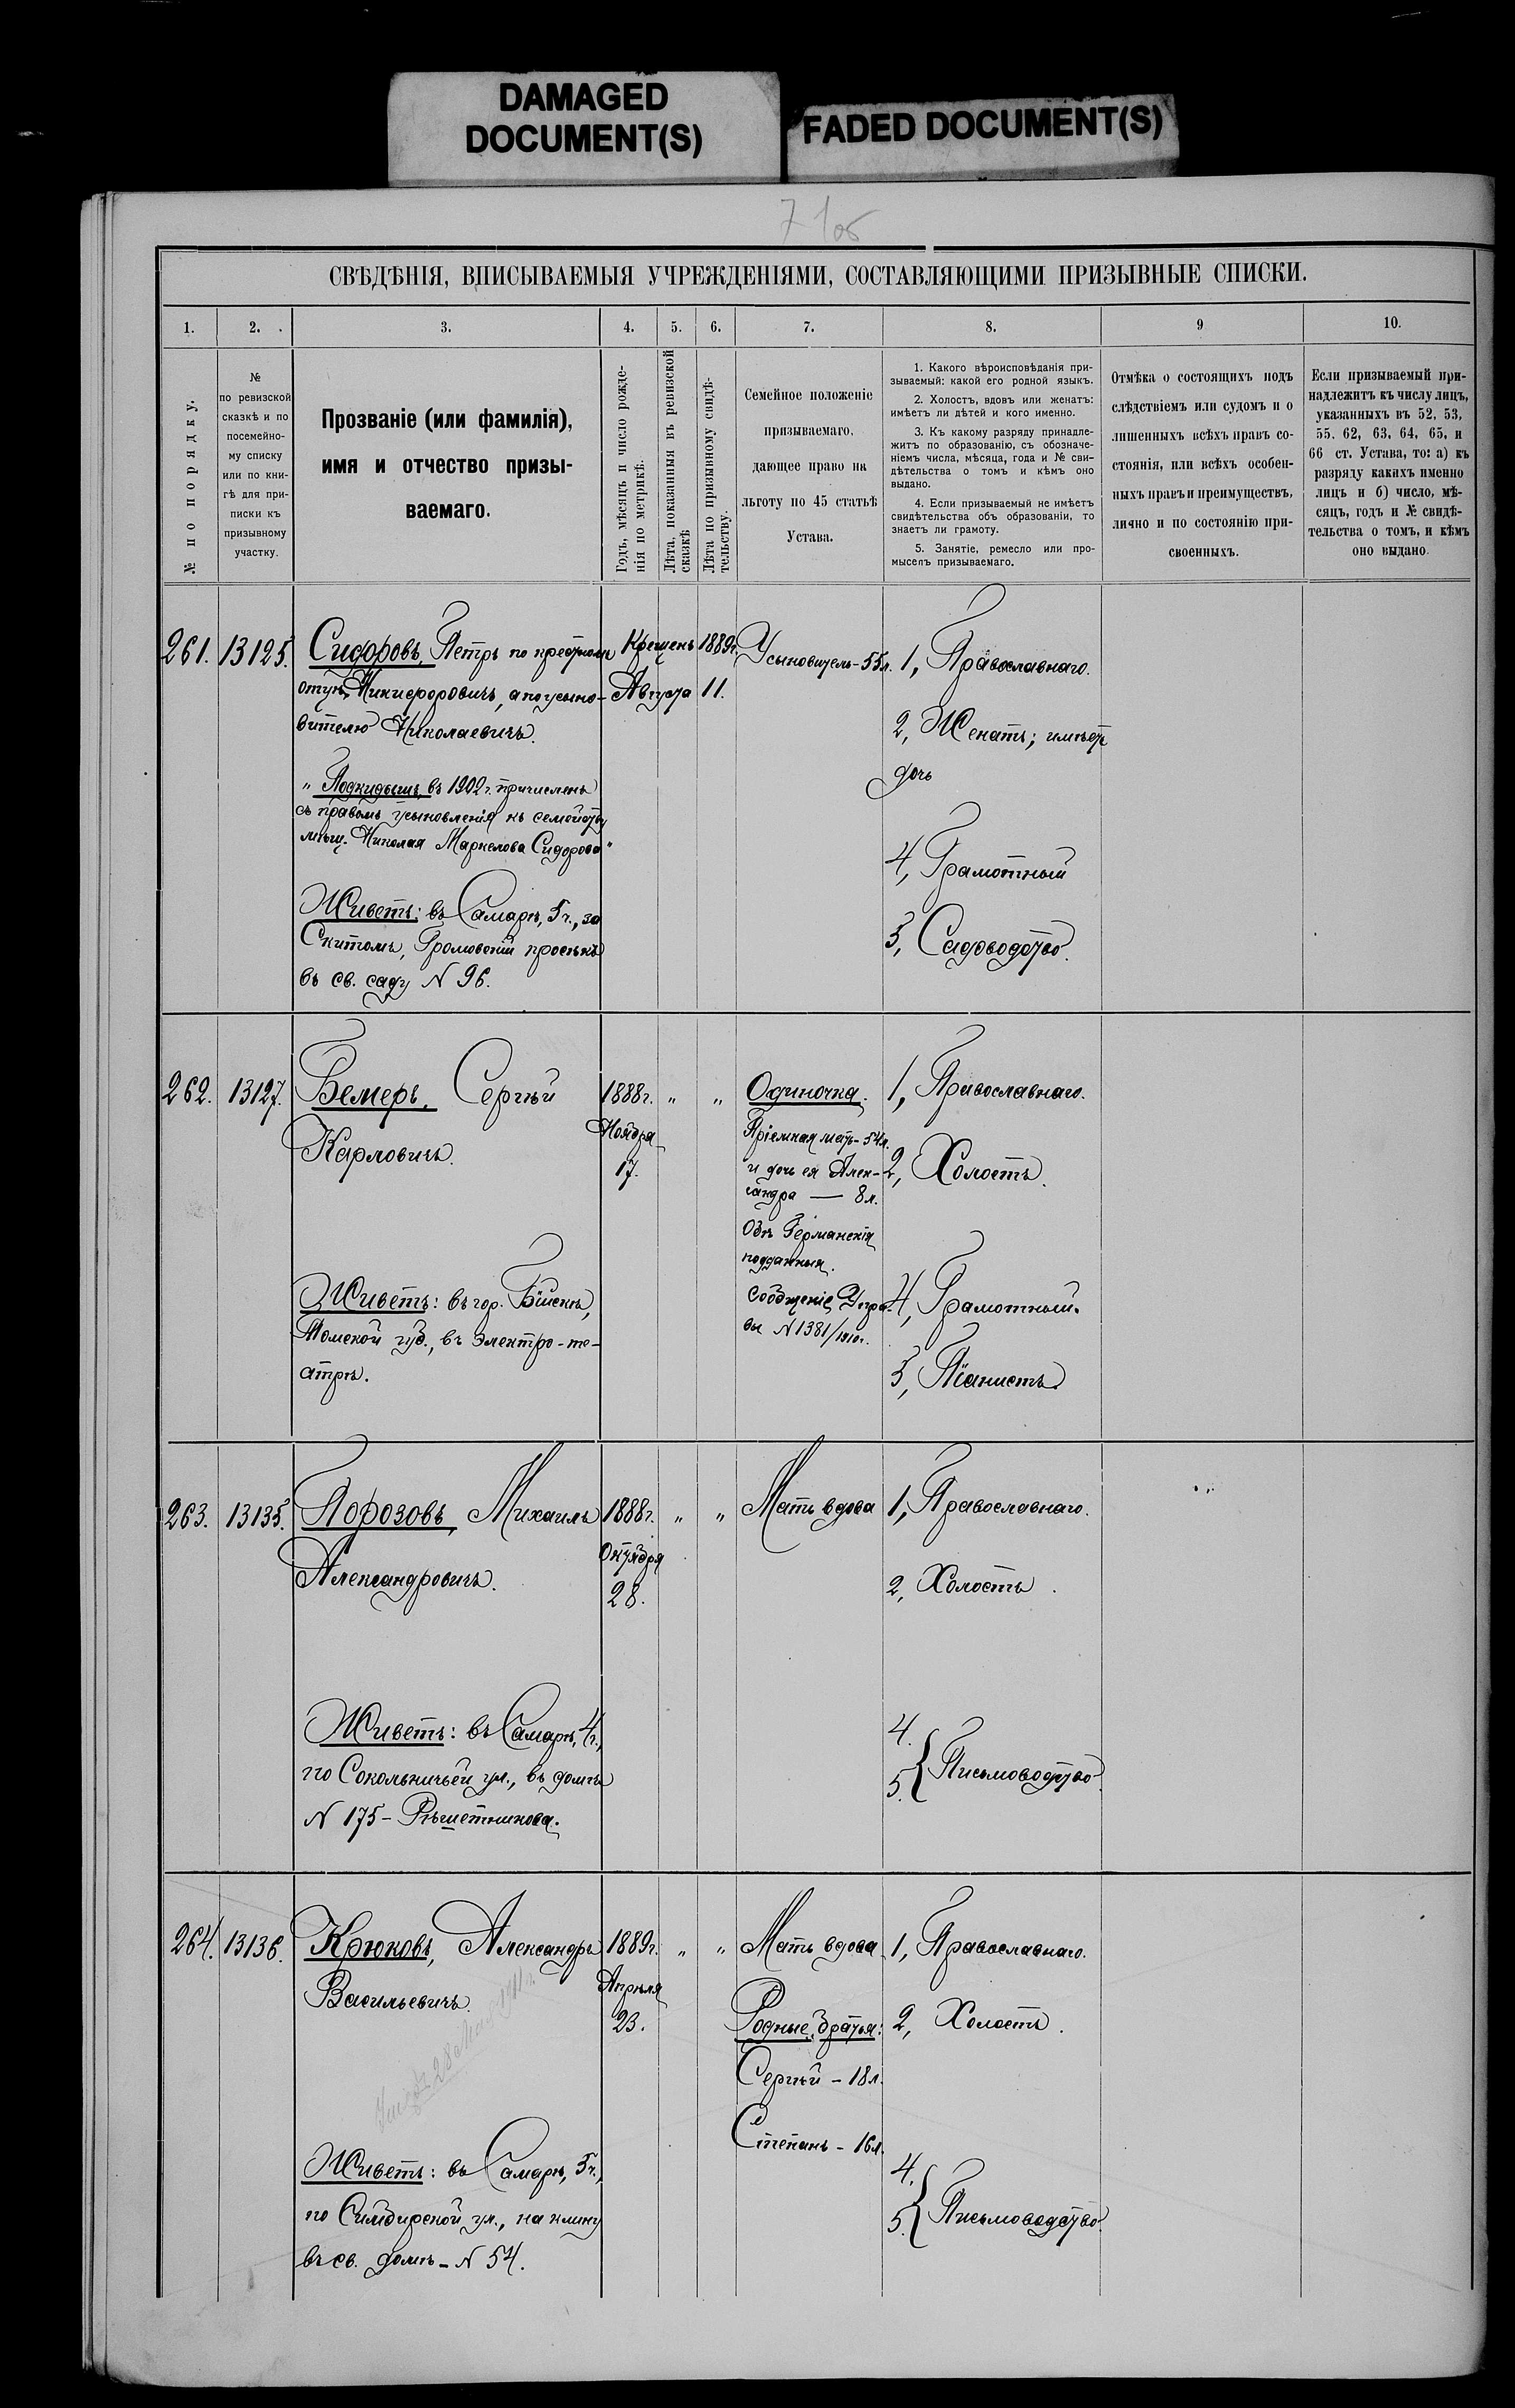 DAMAGED
DOCUMENT(S)
FADED DOCUMENT(S)
71об
СВѢДѢНІЯ, ВПИСЫВАЕМЫЯ УЧРЕЖДЕНІЯМИ, СОСТАВЛЯЮЩИМИ ПРИЗЫВНЫЕ СПИСКИ.
1.
2.
3.
4.
5.
6.
7.
8.
9
10.
№ по порядку.
№
по ревизской
сказкѣ и по
посемейно-
му списку
или по кни-
гѣ для при-
писки къ
призывному
участку.
Прозваніе (или фамилія),
имя и отчество призы-
ваемаго.
Годъ, мѣсяцъ и число рожде-
нія по метрикѣ.
Лѣта, показанныя въ ревизской
сказкѣ
Лѣта по призывному свидѣ-
тельству.
Семейное положеніе
призываемаго,
дающее право на
льготу по 45 статьѣ
Устава.
1. Какого вѣроисповѣданія при-
зываемый: какой его родной языкъ.
2. Холостъ, вдовъ или женатъ:
имѣетъ ли дѣтей и кого именно.
3. Къ какому разряду принадле-
житъ по образованію, съ обозначе-
ніемъ числа, мѣсяца, года и № сви-
дѣтельства о томъ и кѣмъ оно
выдано.
4. Если призываемый не имѣетъ
свидѣтельства объ образованіи, то
знаетъ ли грамоту.
5. Занятіе, ремесло или про-
мыселъ призываемаго.
Отмѣка о состоящихъ подъ
слѣдствіемъ или судомъ и о
лишенныхъ всѣхъ правъ со-
стоянія, или всѣхъ особен-
ныхъ правъ и преимуществъ,
лично и по состоянію при-
своенныхъ.
Если призываемый при-
надлежитъ къ числу лицъ,
указанныхъ въ 52, 53,
55, 62, 63, 64, 65, и
66 ст. Устава, то: а) къ
разряду какихъ именно
лицъ и б) число, мѣ-
сяцъ, годъ и № свидѣ-
тельства о томъ, и кѣмъ
оно выдано.
261. 13125.
Сидоровъ, Петръ по крестному
отцу, Никифоровичъ, а по усыно-
вителю Николаевичъ.
"Подкидышъ, въ 1902 г. причисленъ
съ правомъ усыновленія къ семейству
мѣщ. Николая Маркелова Сидорова"
Живетъ: въ Самарѣ, 5 ч., за
Скитомъ, Громовскій просѣкъ
въ св. саду N 96.
Крещенъ 1889 г.
Августа 11.
Усыновитель - 55 л.
1, Православнаго.
2, Женатъ; имѣетъ
дочь
4, Грамотный
5, Садоводство.
262. 13127.
Бемеръ, Сергѣй
Карловичъ.
Живетъ: въ гор. Бійскѣ,
Томской губ., въ электро-те-
атрѣ.
1888 г. " "
Ноября
17.
Одиночка.
Пріемная мать - 54 л.
и дочь ея Алек-
сандра — 8 л.
Обѣ Германскія
подданныя.
Сообщеніе Упра-
вы N 1381/1910 г.
1, Православнаго.
2, Холостъ.
4, Грамотный.
5, Піанистъ.
263. 13135.
Порозовъ, Михаилъ
Александровичъ.
Живетъ: въ Самарѣ, 4 ч.,
по Сокольничьей ул., въ домѣ
N 175 - Рѣшетникова.
1888 г. " "
Октября
28.
Мать вдова
1, Православнаго.
2, Холостъ.
4.
5. Письмоводство.
264. 13136.
Крюковъ, Александръ
Васильевичъ.
Живетъ: въ Самарѣ, 5 ч.,
по Симбирской ул., на клину
въ св. домѣ - N 54.
1889 г. " "
Апрѣля
23.
Мать вдова
Родные братья:
Сергѣй - 18 л.
Степанъ - 16 л.
1, Православнаго.
2, Холостъ.
4.
5. Письмоводство.